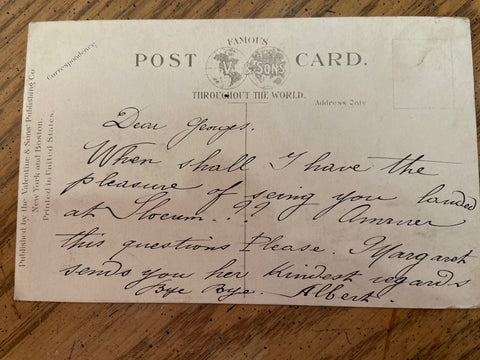 FAMOUS
POST CARD.
V & SONS
THROUGHOUT THE WORLD.
Correspondence
Address Only
Published by the Valentine & Sons' Publishing Co
New York and Boston.
Printed in United States.
Dear Georges.
When shall I have the
pleasure of seing you landed
at Slocum..?? Answer
this questions Please. Margaret
sends you her Kindest regards
Bye Bye. Albert.